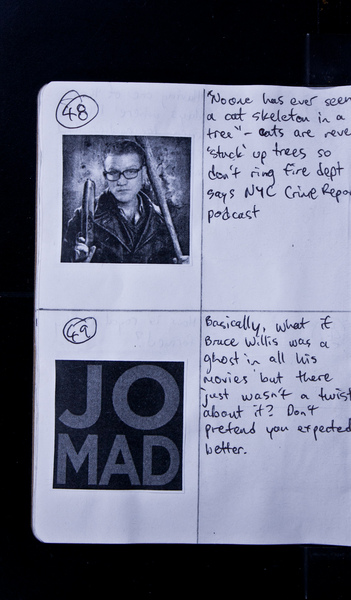 48
"No one has ever seen
a cat skeleton in a
tree" - cats are neve
'stuck' up trees so
don't ring Fire dept
says NYC Crime Repor
podcast
49
JO
MAD
Basically, what if
Bruce Willis was a
ghost in all his
movies but there
just wasn't a twist
about it? Don't
pretend you expected
better.